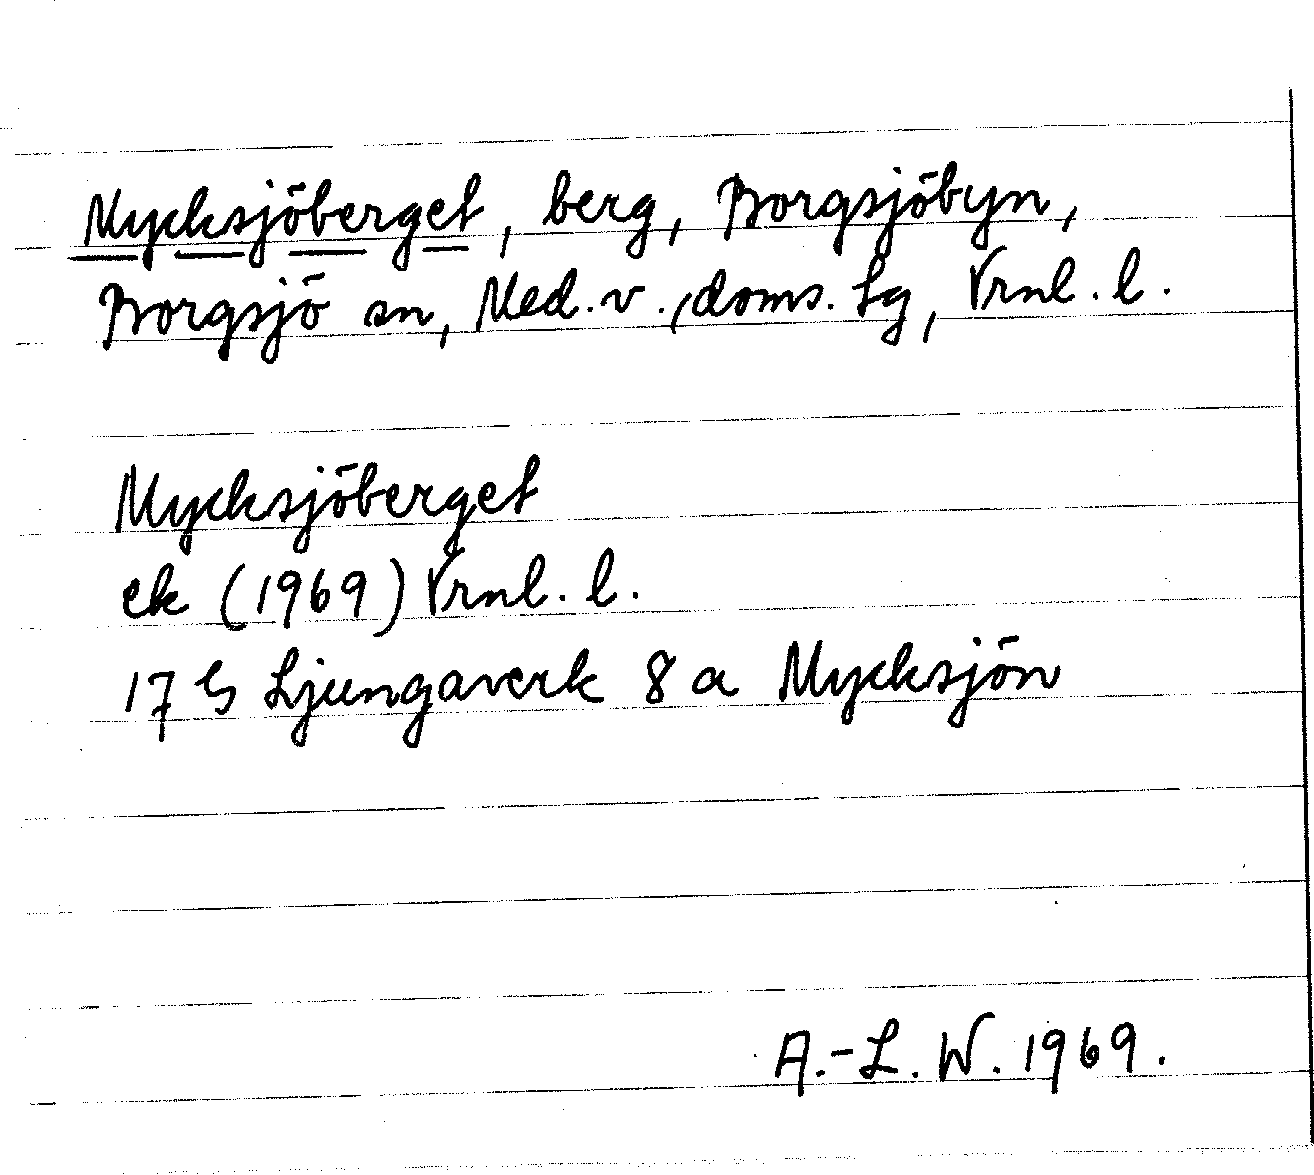 Mycksjöberget, berg, Borgsjöbyn,
Borgsjö sn, Med. v., doms. Lg, Vrnl. l.
Mycksjöberget
ek (1969) Vrnl. l.
17 G Ljungaverk 8 a Mycksjön
A.-L. W. 1969.